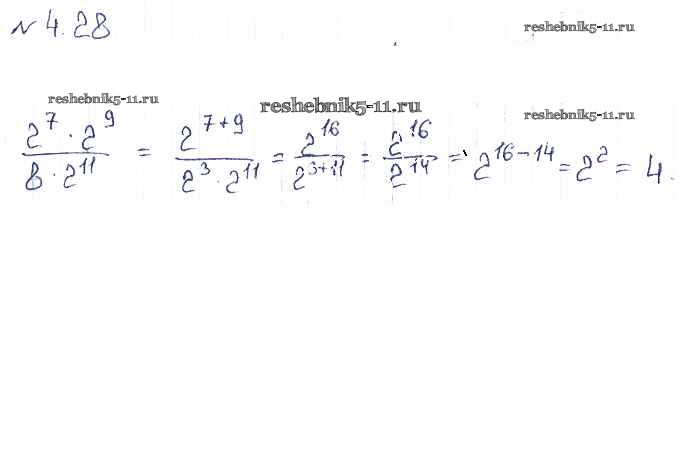 № 4.28
reshebnik5-11.ru
reshebnik5-11.ru
reshebnik5-11.ru
reshebnik5-11.ru
2^7 · 2^9 / 8 · 2^11 = 2^(7+9) / 2^3 · 2^11 = 2^16 / 2^(3+11) = 2^16 / 2^14 = 2^(16-14) = 2^2 = 4.